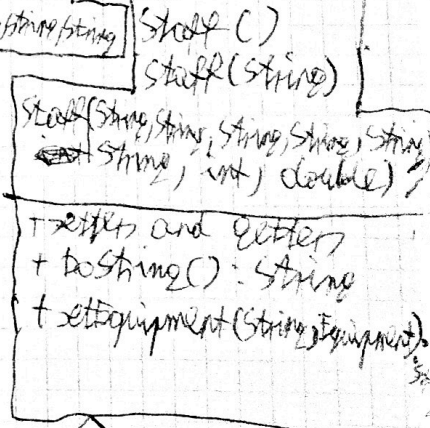 string, string
Staff()
Staff(String)
Staff(String, String, String, String, String
String, int, double)
+ setters and getters
+ toString() : String
+ setEquipment(String, Equipment):